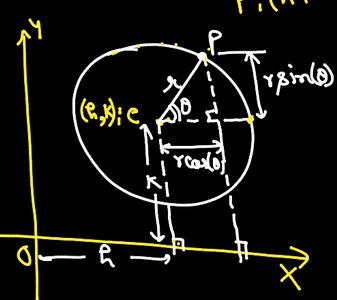 Y
P
r
r sin(θ)
(h,k):C
θ
r cos(θ)
K
O
h
X